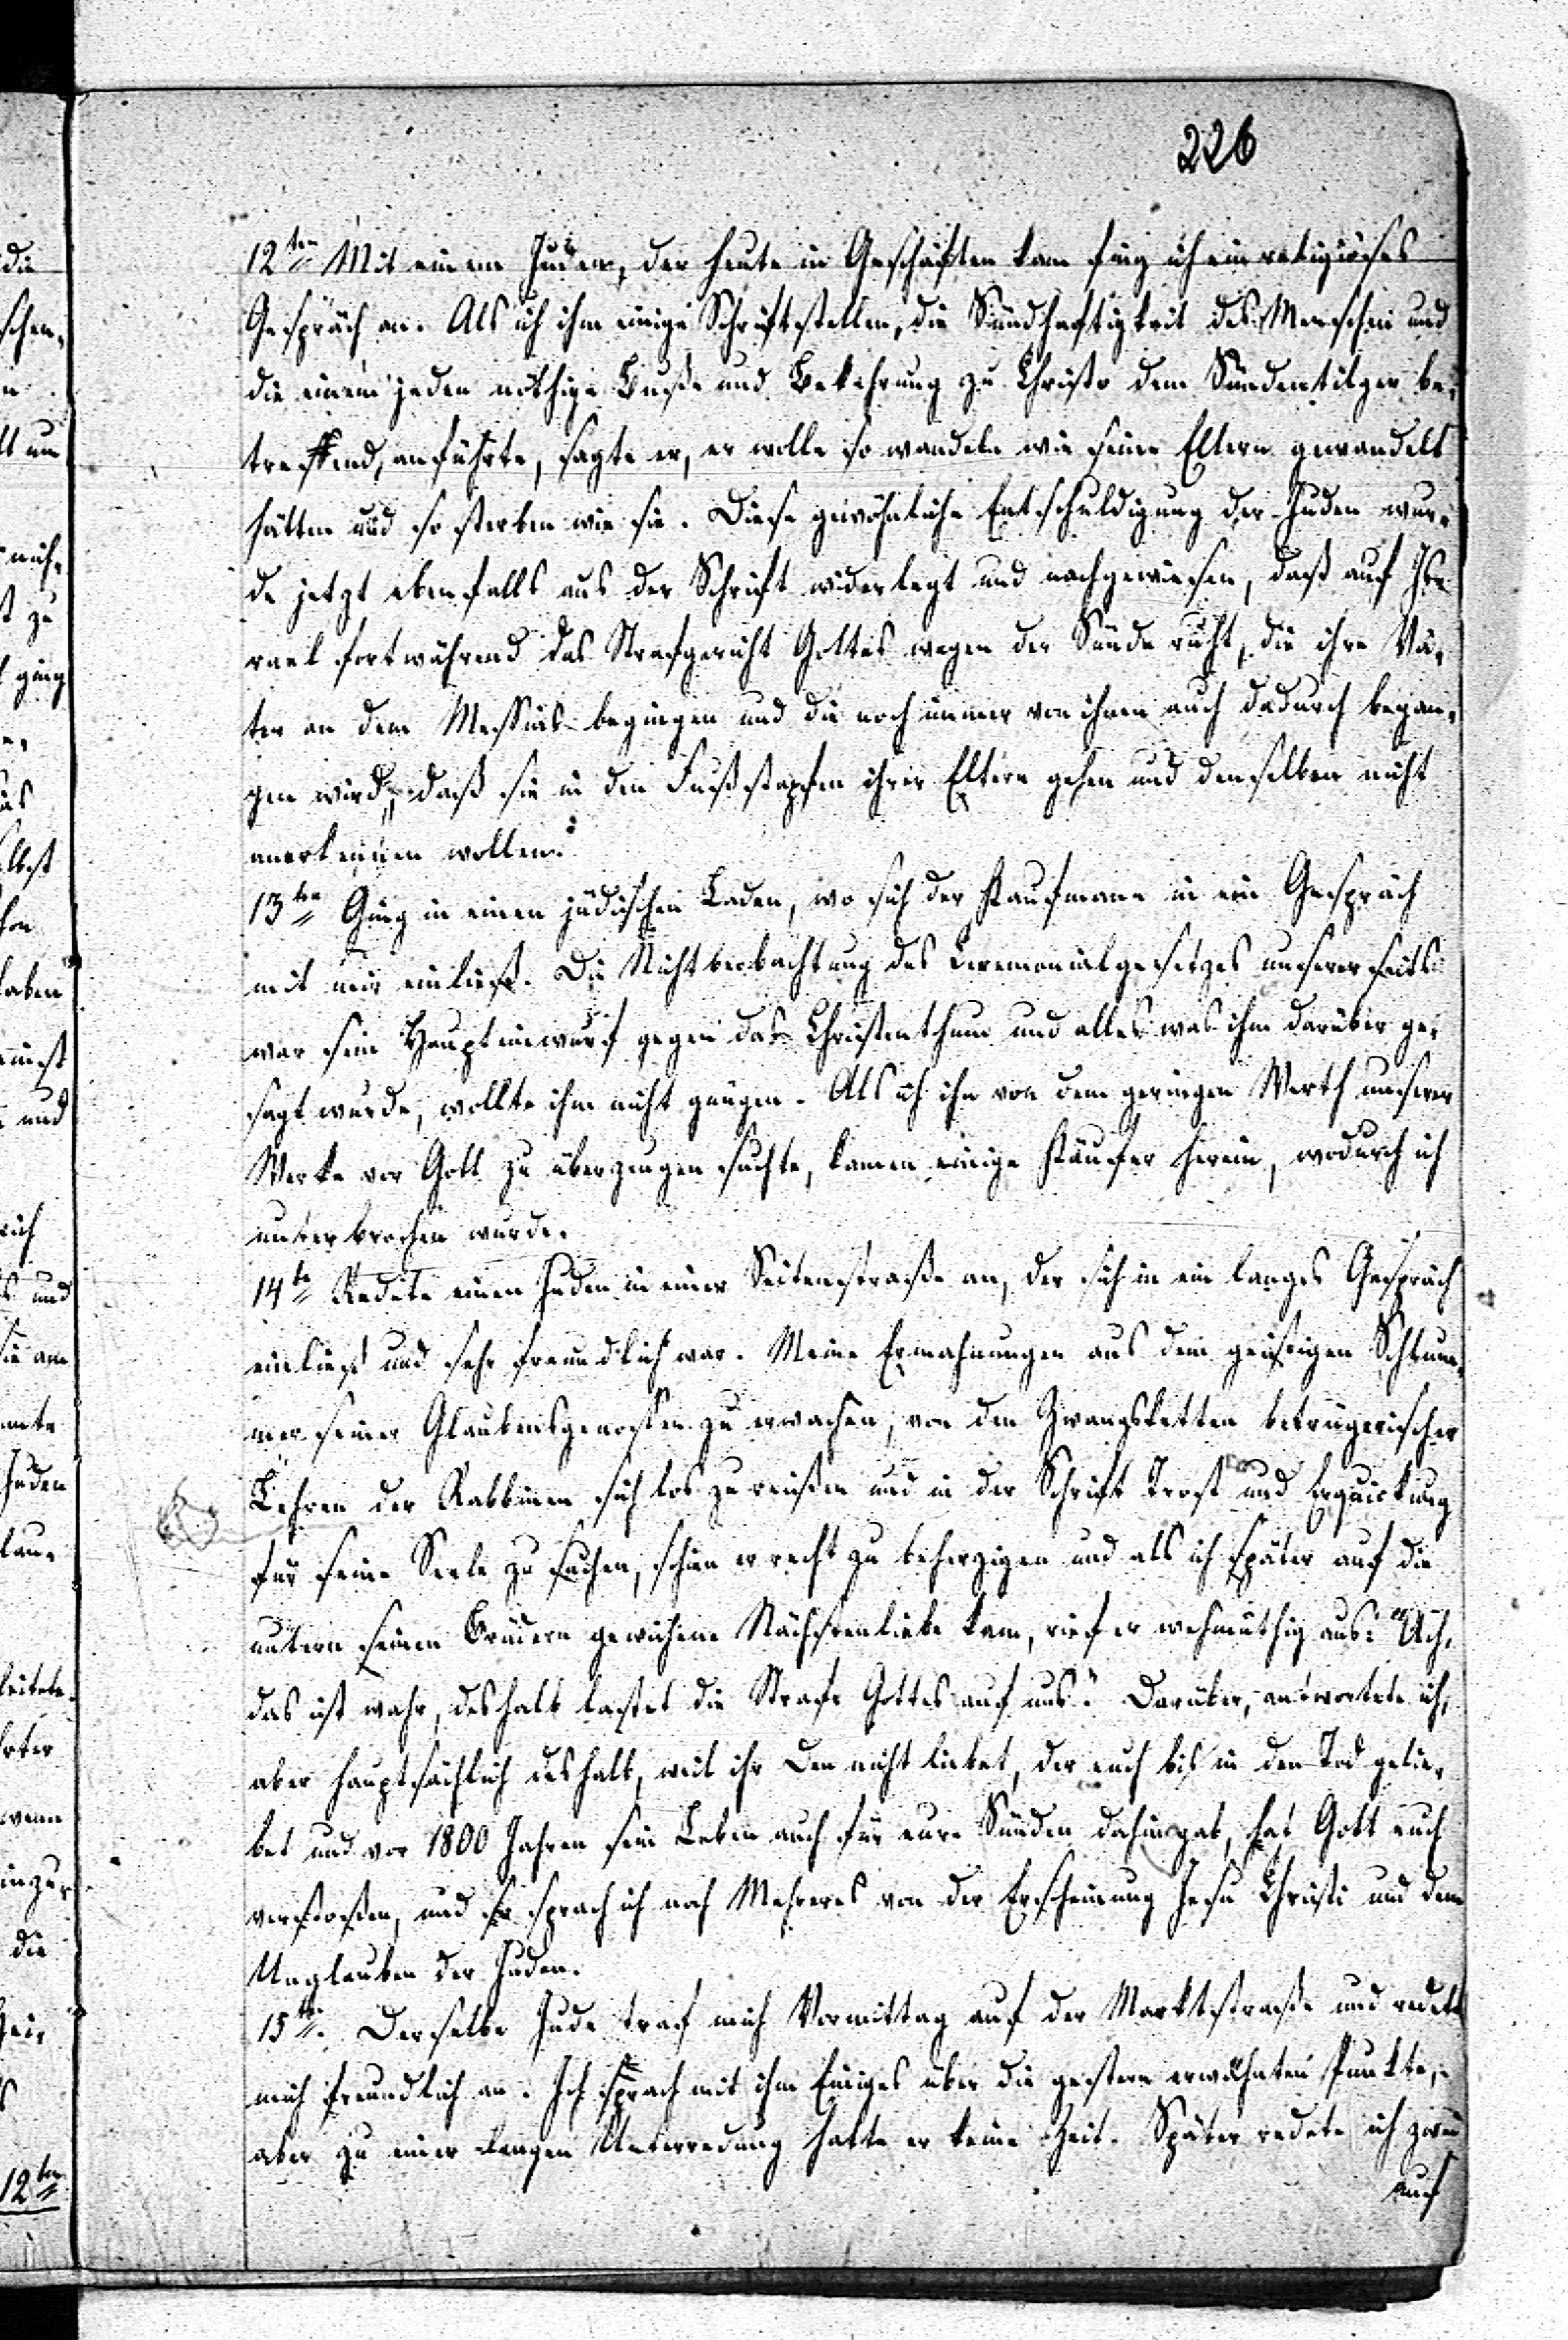 226
12ten Mit einem Juden, der heute in Geschäften kam fing ich ein religiöses
Gespräch an. Als ich ihm einige Schriftstellen, die Sündhaftigkeit des Menschen und
die einem jeden nöthige Buße und Bekehrung zu Christo dem Sündentilger be-
treffend, anführte, sagte er, er wolle so wandeln wie seine Eltern gewandelt
hätten und so sterben wie sie. Diese gewöhnliche Entschuldigung der Juden wur-
de jetzt ebenfalls aus der Schrift widerlegt und nachgewiesen, daß auf Is-
rael fortwährend das Strafgericht Gottes wegen der Sünde ruht, die ihre Vä-
ter an dem Messias begingen und die noch immer von ihnen auch dadurch began-
gen wird, daß sie in den Fußstapfen ihrer Eltern gehen und denselben nicht
anerkennen wollen.
13ten Ging in einen jüdischen Laden, wo sich der Kaufmann in ein Gespräch
mit mir einließ. Die Nichtbeobachtung des Ceremonialgesetzes unserer seits
war sein Haupteinwurf gegen das Christenthum und alles was ihm darüber ge-
sagt wurde, wollte ihm nicht gnügen. Als ich ihn von dem geringen Werth unserer
Werke vor Gott zu überzeugen suchte, kamen einige Käufer herein, wodurch ich
unterbrochen wurde.
14te Redete einen Juden in einer Seitenstraße an, der sich in ein langes Gespräch
einließ und sehr freundlich war. Meine Ermahnungen aus dem geistigen Schlum-
mer seiner Glaubensgenossen zu erwachen, von den Zwangsketten betrügerischer
Lehren der Rabbinen sich los zu reißen und in der Schrift Trost und Erquickung
für seine Seele zu suchen, schien er recht zu beherzigen und als ich später auf die
untern seinen Brüdern gewichene Nächstenliebe kam, rief er wehmüthig aus: "Ach,
das ist wahr, deshalb lastet die Strafe Gottes auf uns." Darüber, antwortete ich,
aber hauptsächlich deshalb, weil ihr Den nicht liebet, der euch bis in den Tod gelie-
bet und vor 1800 Jahren sein Leben auch für eure Sünden dahingab, hat Gott euch
verstoßen, und so sprach ich noch Mehreres von der Erscheinung Jesu Christi und dem
Unglauben der Juden.
15te. Derselbe Jude traf mich Vormittag auf der Marktstraße und redete
mich freundlich an. Ich sprach mit ihm Einiges über die gestern erwähnten Punkte,
aber zu einer langen Unterredung hatte er keine Zeit. Später redete ich zwei
auf